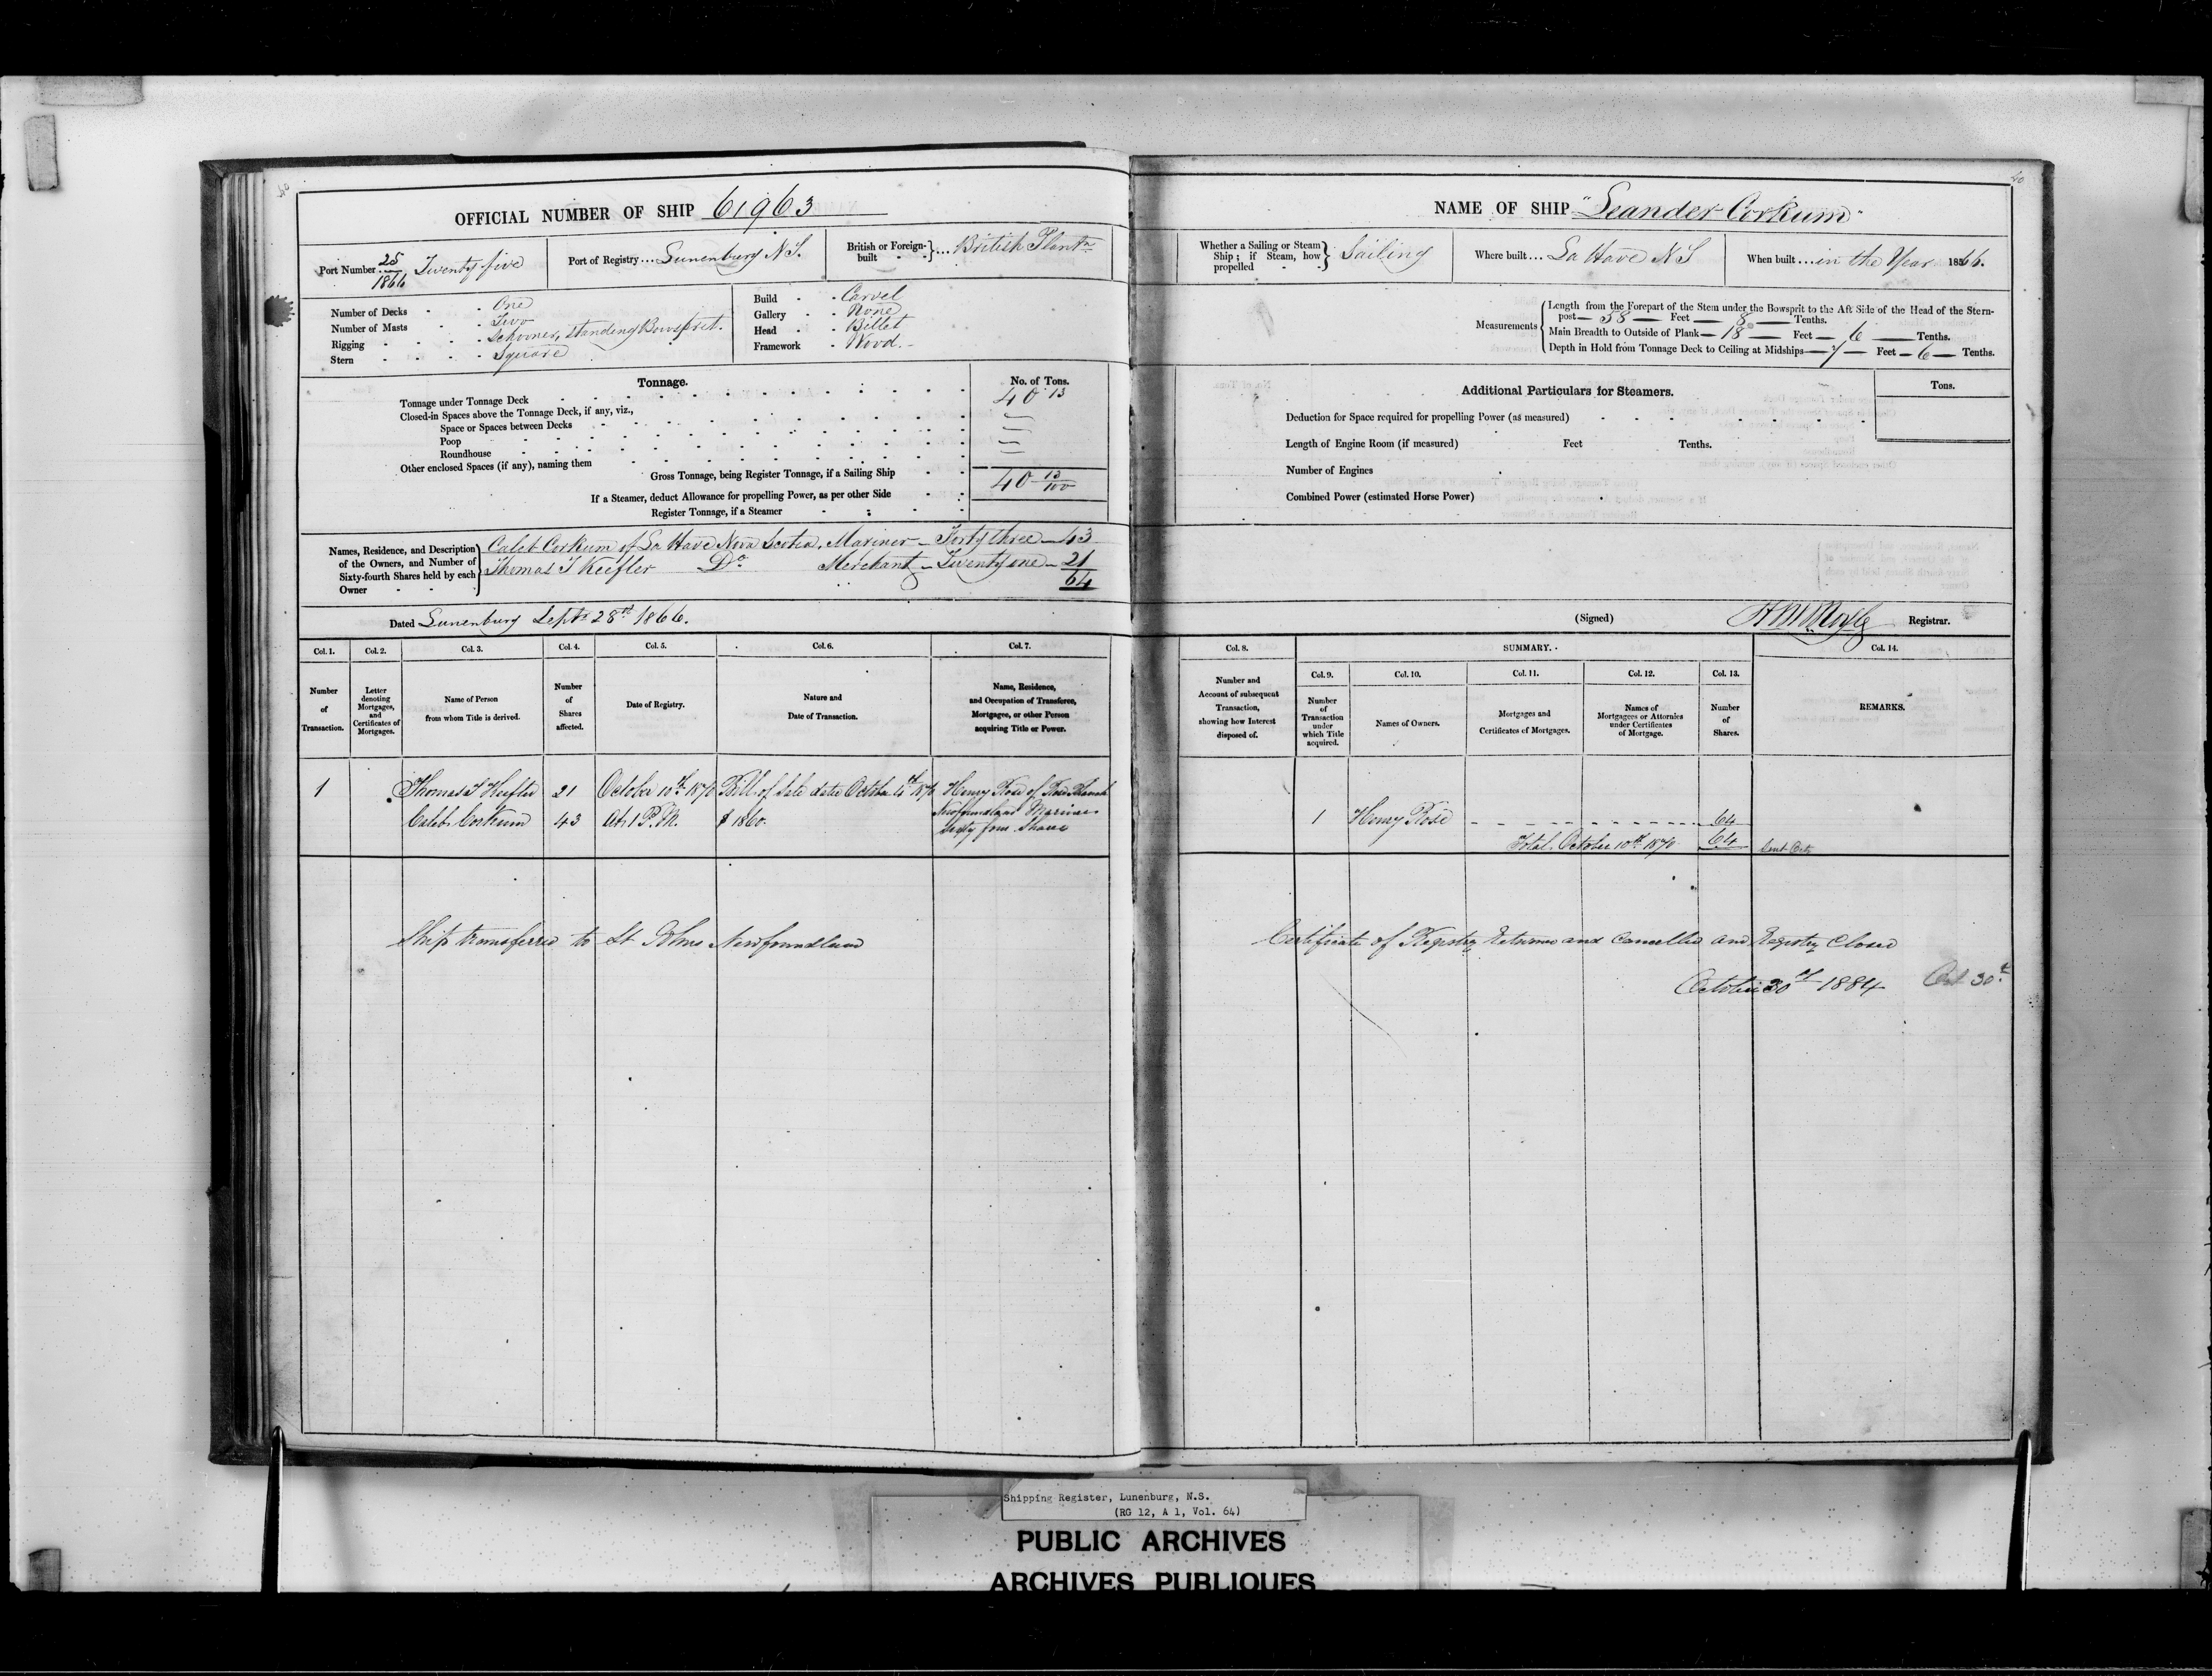 40
OFFICIAL NUMBER OF SHIP 61963
Port Number 25/1866 Twenty five
Port of Registry... Lunenburg N.S.
British or Foreign-built }... British Plantn
Number of Decks - - One
Number of Masts - - Two
Rigging - - - - Schooner, Standing Bowsprit.
Stern - - - - Square
Build - - Carvel
Gallery - - None
Head - - Billet
Framework - Wood.
Tonnage.
No. of Tons.
Tonnage under Tonnage Deck 40 13
Closed-in Spaces above the Tonnage Deck, if any, viz.,
Space or Spaces between Decks
Poop
Roundhouse
Other enclosed Spaces (if any), naming them
Gross Tonnage, being Register Tonnage, if a Sailing Ship 40 13/100
If a Steamer, deduct Allowance for propelling Power, as per other Side
Register Tonnage, if a Steamer
Names, Residence, and Description of the Owners, and Number of Sixty-fourth Shares held by each Owner
Caleb Corkum of La Have Nova Scotia, Mariner - Forty three - 43
Thomas T Keefler Do Merchant - Twenty one - 21
64
Dated Lunenburg Septr 28th 1866.
Col. 1.
Number of Transaction.
Col. 2.
Letter denoting Mortgages, and Certificates of Mortgages.
Col. 3.
Name of Person from whom Title is derived.
Col. 4.
Number of Shares affected.
Col. 5.
Date of Registry.
Col. 6.
Nature and Date of Transaction.
Col. 7.
Name, Residence, and Occupation of Transferee, Mortgagee, or other Person acquiring Title or Power.
1 Thomas T Keefler 21 October 10th 1870 Bill of Sale date October 4th 1870 Henry Rose of
Caleb Corkum 43 At 1 P.M. $1860. Newfoundland Mariner
Sixty four Shares
Ship transferred to St Johns Newfoundland
40
NAME OF SHIP "Leander Corkum"
Whether a Sailing or Steam Ship; if Steam, how propelled } Sailing
Where built... La Have N S
When built... in the Year 1866.
Measurements
Length from the Forepart of the Stem under the Bowsprit to the Aft Side of the Head of the Stern-
post— 58 — Feet — 8 — Tenths.
Main Breadth to Outside of Plank— 18 — Feet — 6 — Tenths.
Depth in Hold from Tonnage Deck to Ceiling at Midships— 7 — Feet — 6 — Tenths.
Additional Particulars for Steamers.
Tons.
Deduction for Space required for propelling Power (as measured)
Length of Engine Room (if measured) Feet Tenths.
Number of Engines
Combined Power (estimated Horse Power)
(Signed) Registrar.
Col. 8.
Number and Account of subsequent Transaction, showing how Interest disposed of.
SUMMARY.
Col. 9.
Number of Transaction under which Title acquired.
Col. 10.
Names of Owners.
Col. 11.
Mortgages and Certificates of Mortgages.
Col. 12.
Names of Mortgagees or Attornies under Certificates of Mortgage.
Col. 13.
Number of Shares.
Col. 14.
REMARKS.
1 Henry Rose 64
Total. October 10th 1870 64
Certificate of Registry Returned and Cancelled and Registry Closed
October 30th 1884 Oct 30th
Shipping Register, Lunenburg, N.S.
(RG 12, A 1, Vol. 64)
PUBLIC ARCHIVES
ARCHIVES PUBLIQUES